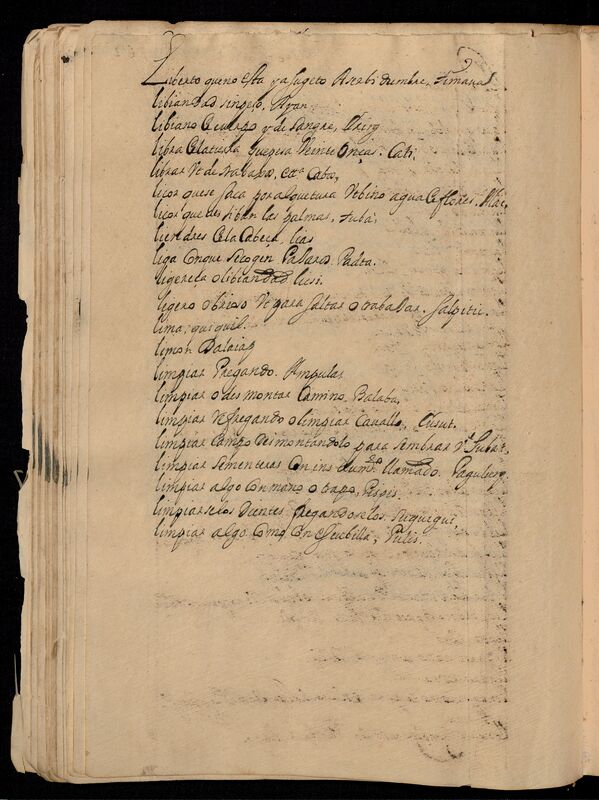 Liberto que no esta ya sugeto a serbi dumbre, timaua
libiandad singelo. Ayan.
libiano de cuerpo y de sangre,
libra de la tierra que pesa Veinte onças. Cati.
librar Vt de trabaxo, etta Caba,
licor que se saca por alquetura Vt bino agua de flores.
licor que destilan las palmas, tuba.
liendres de la Cabeça, lias
liga con que se cogen Paxaros. Padta.
ligereza o libiandad
ligero o brioso Vt para saltar o trabaxar. Salpitic.
lima; quiquil.
limon. Dalaiap
limpiar Fregando. Ampulas
limpiar o desmontar Camino. Balaba,
limpiar Vt fregando o limpiar Cauallo, Cusut.
limpiar Campo desmontandolo para sembrar
limpiar sementeras Con ins trumto. llamado.
limpiar algo Con mano o trapo, Pispis.
limpiarse los dientes fregandoselos. Suquigui,
limpiar algo Como Con Escubilla, Pulis.